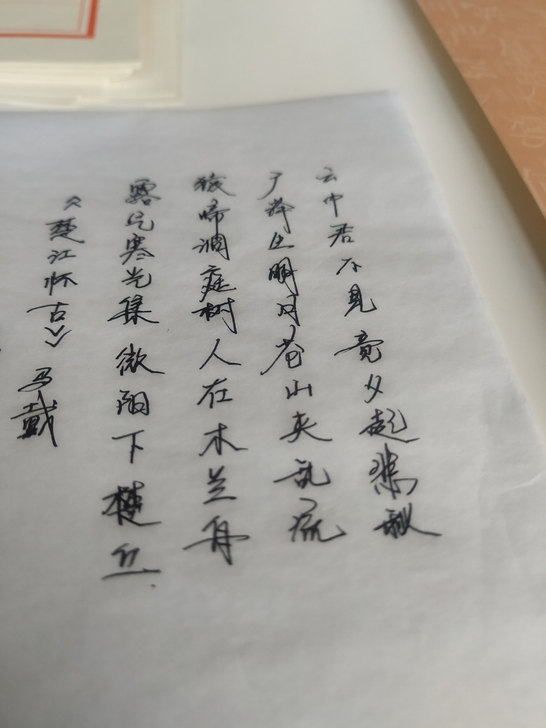 《楚江怀古》马戴
露气寒光集微阳下楚丘
猿啼洞庭树人在木兰舟
广泽生明月苍山夹乱流
云中君不见竟夕起悲秋